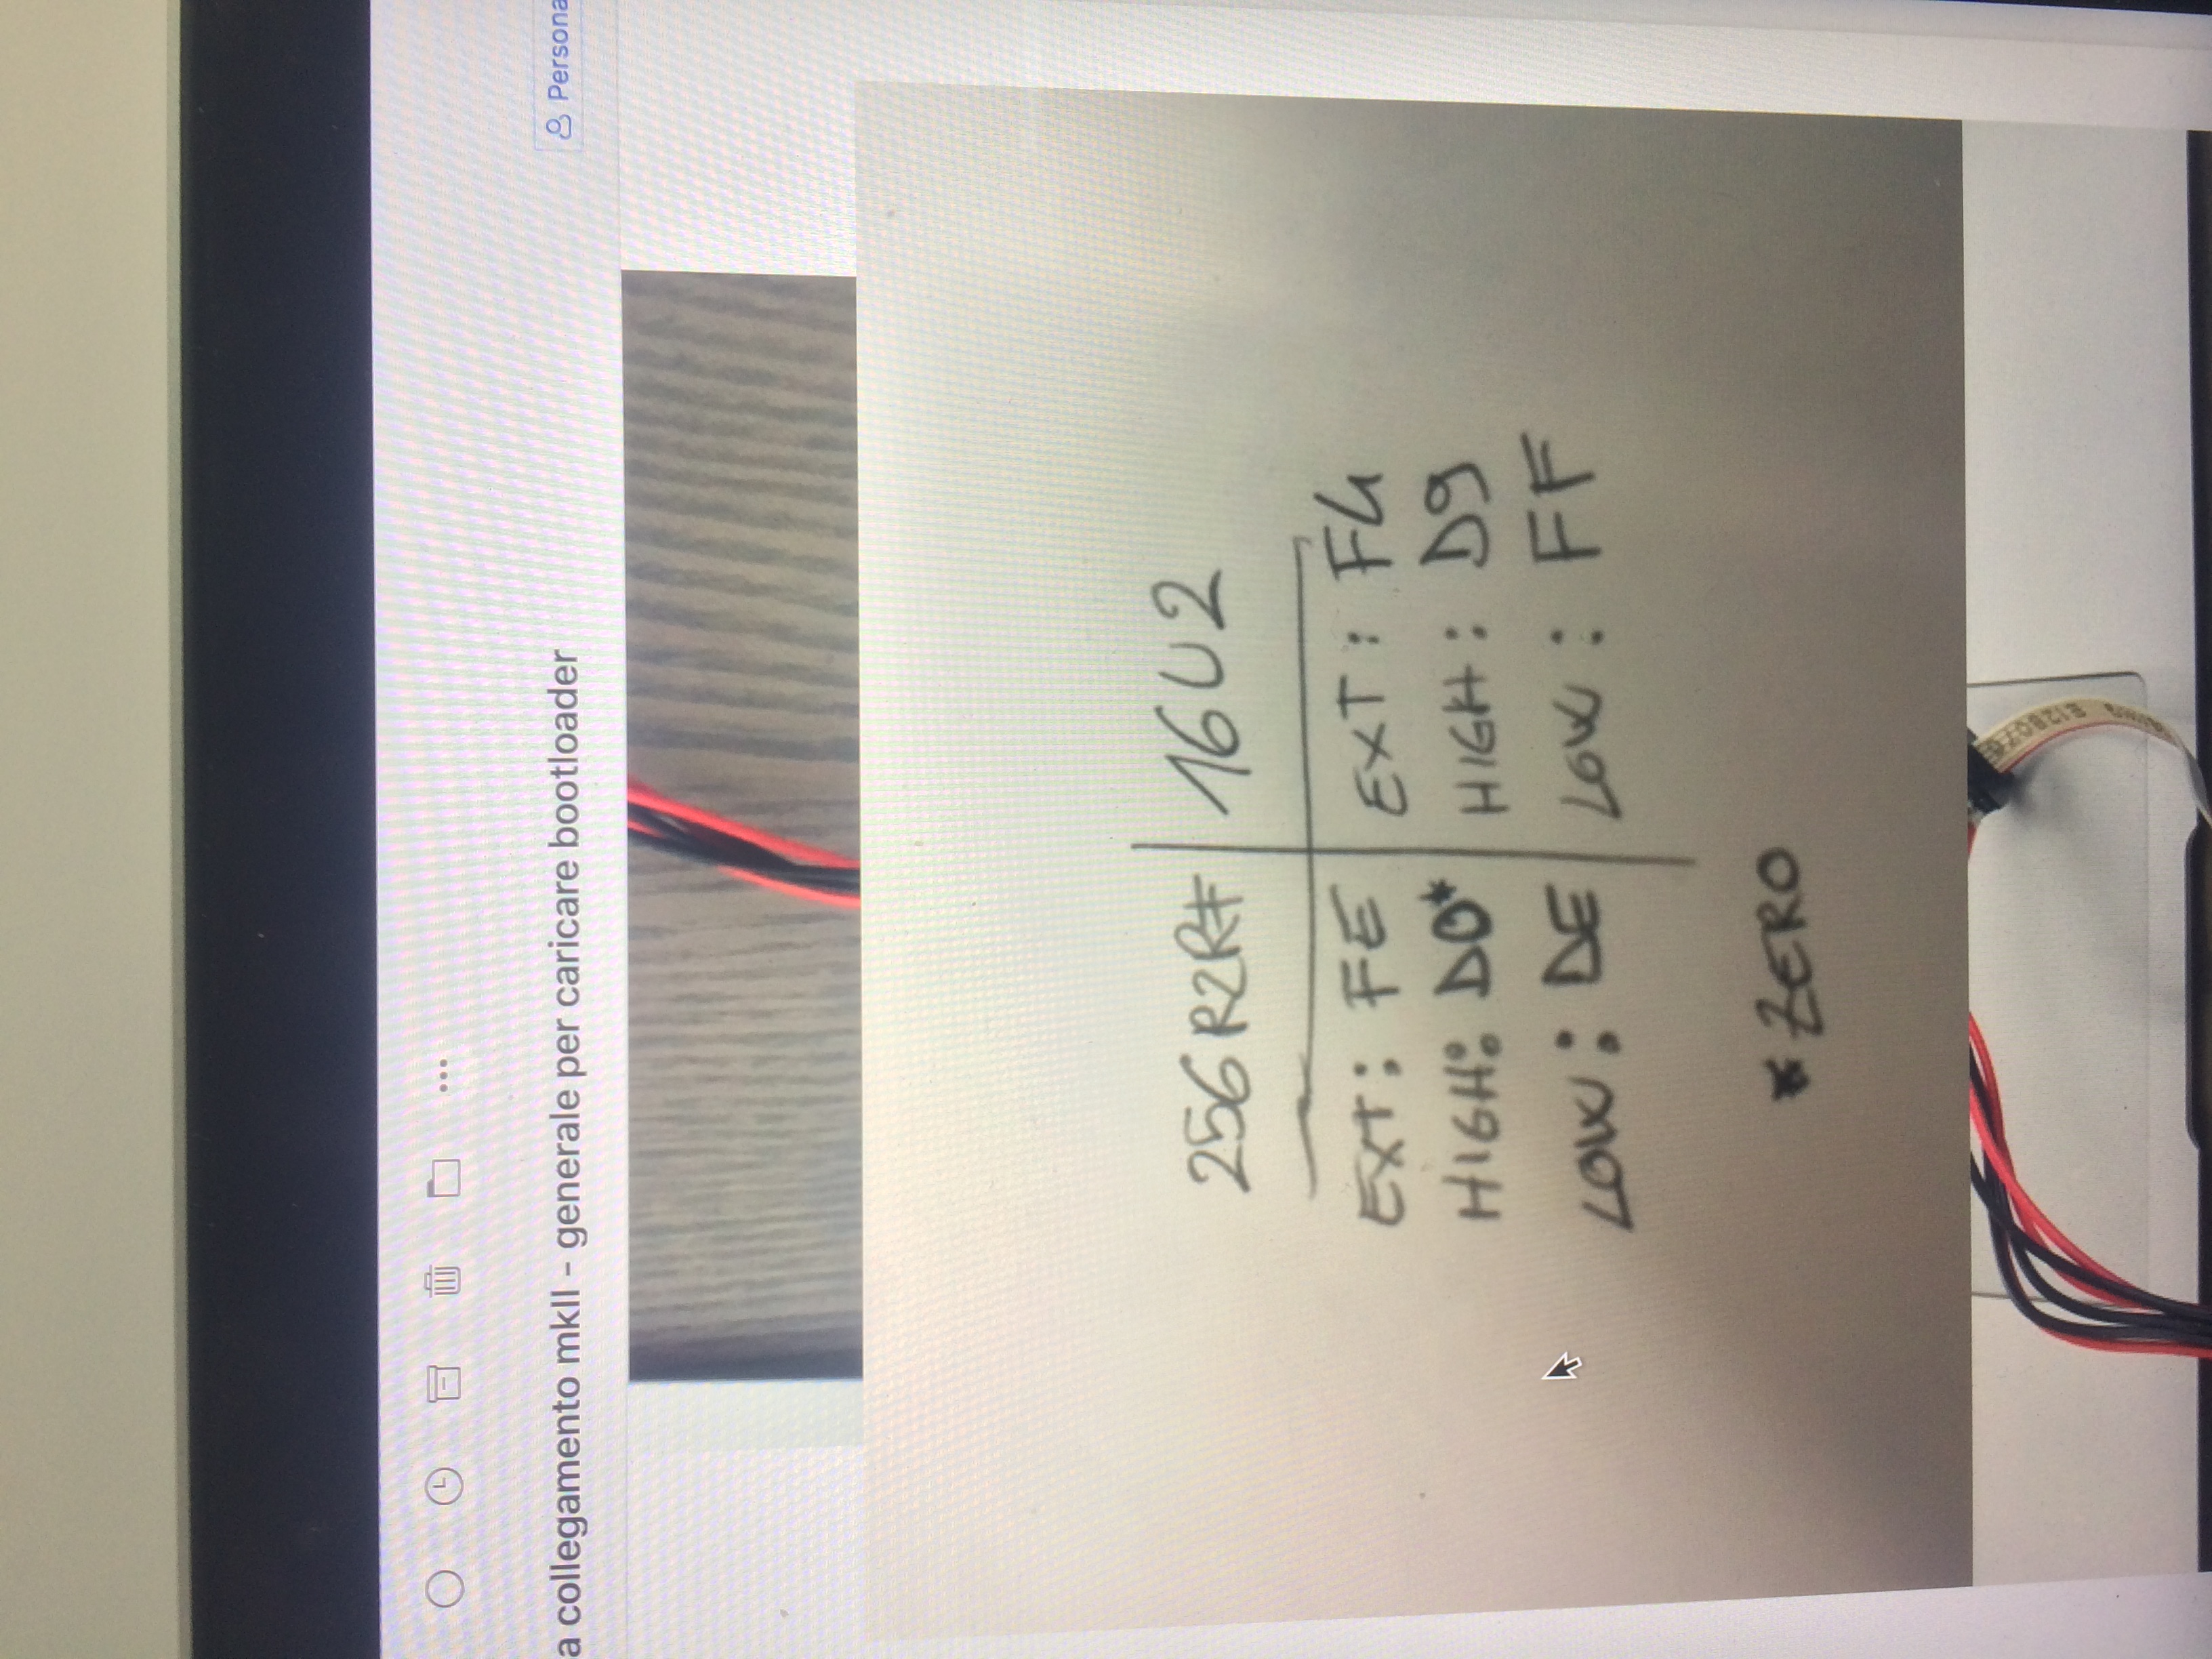 a collegamento mkII - generale per caricare bootloader
Persona
256R2RF 16U2
EXT: FE EXT: F4
HIGH: D0* HIGH: D9
LOW: DE LOW: FF
*ZERO